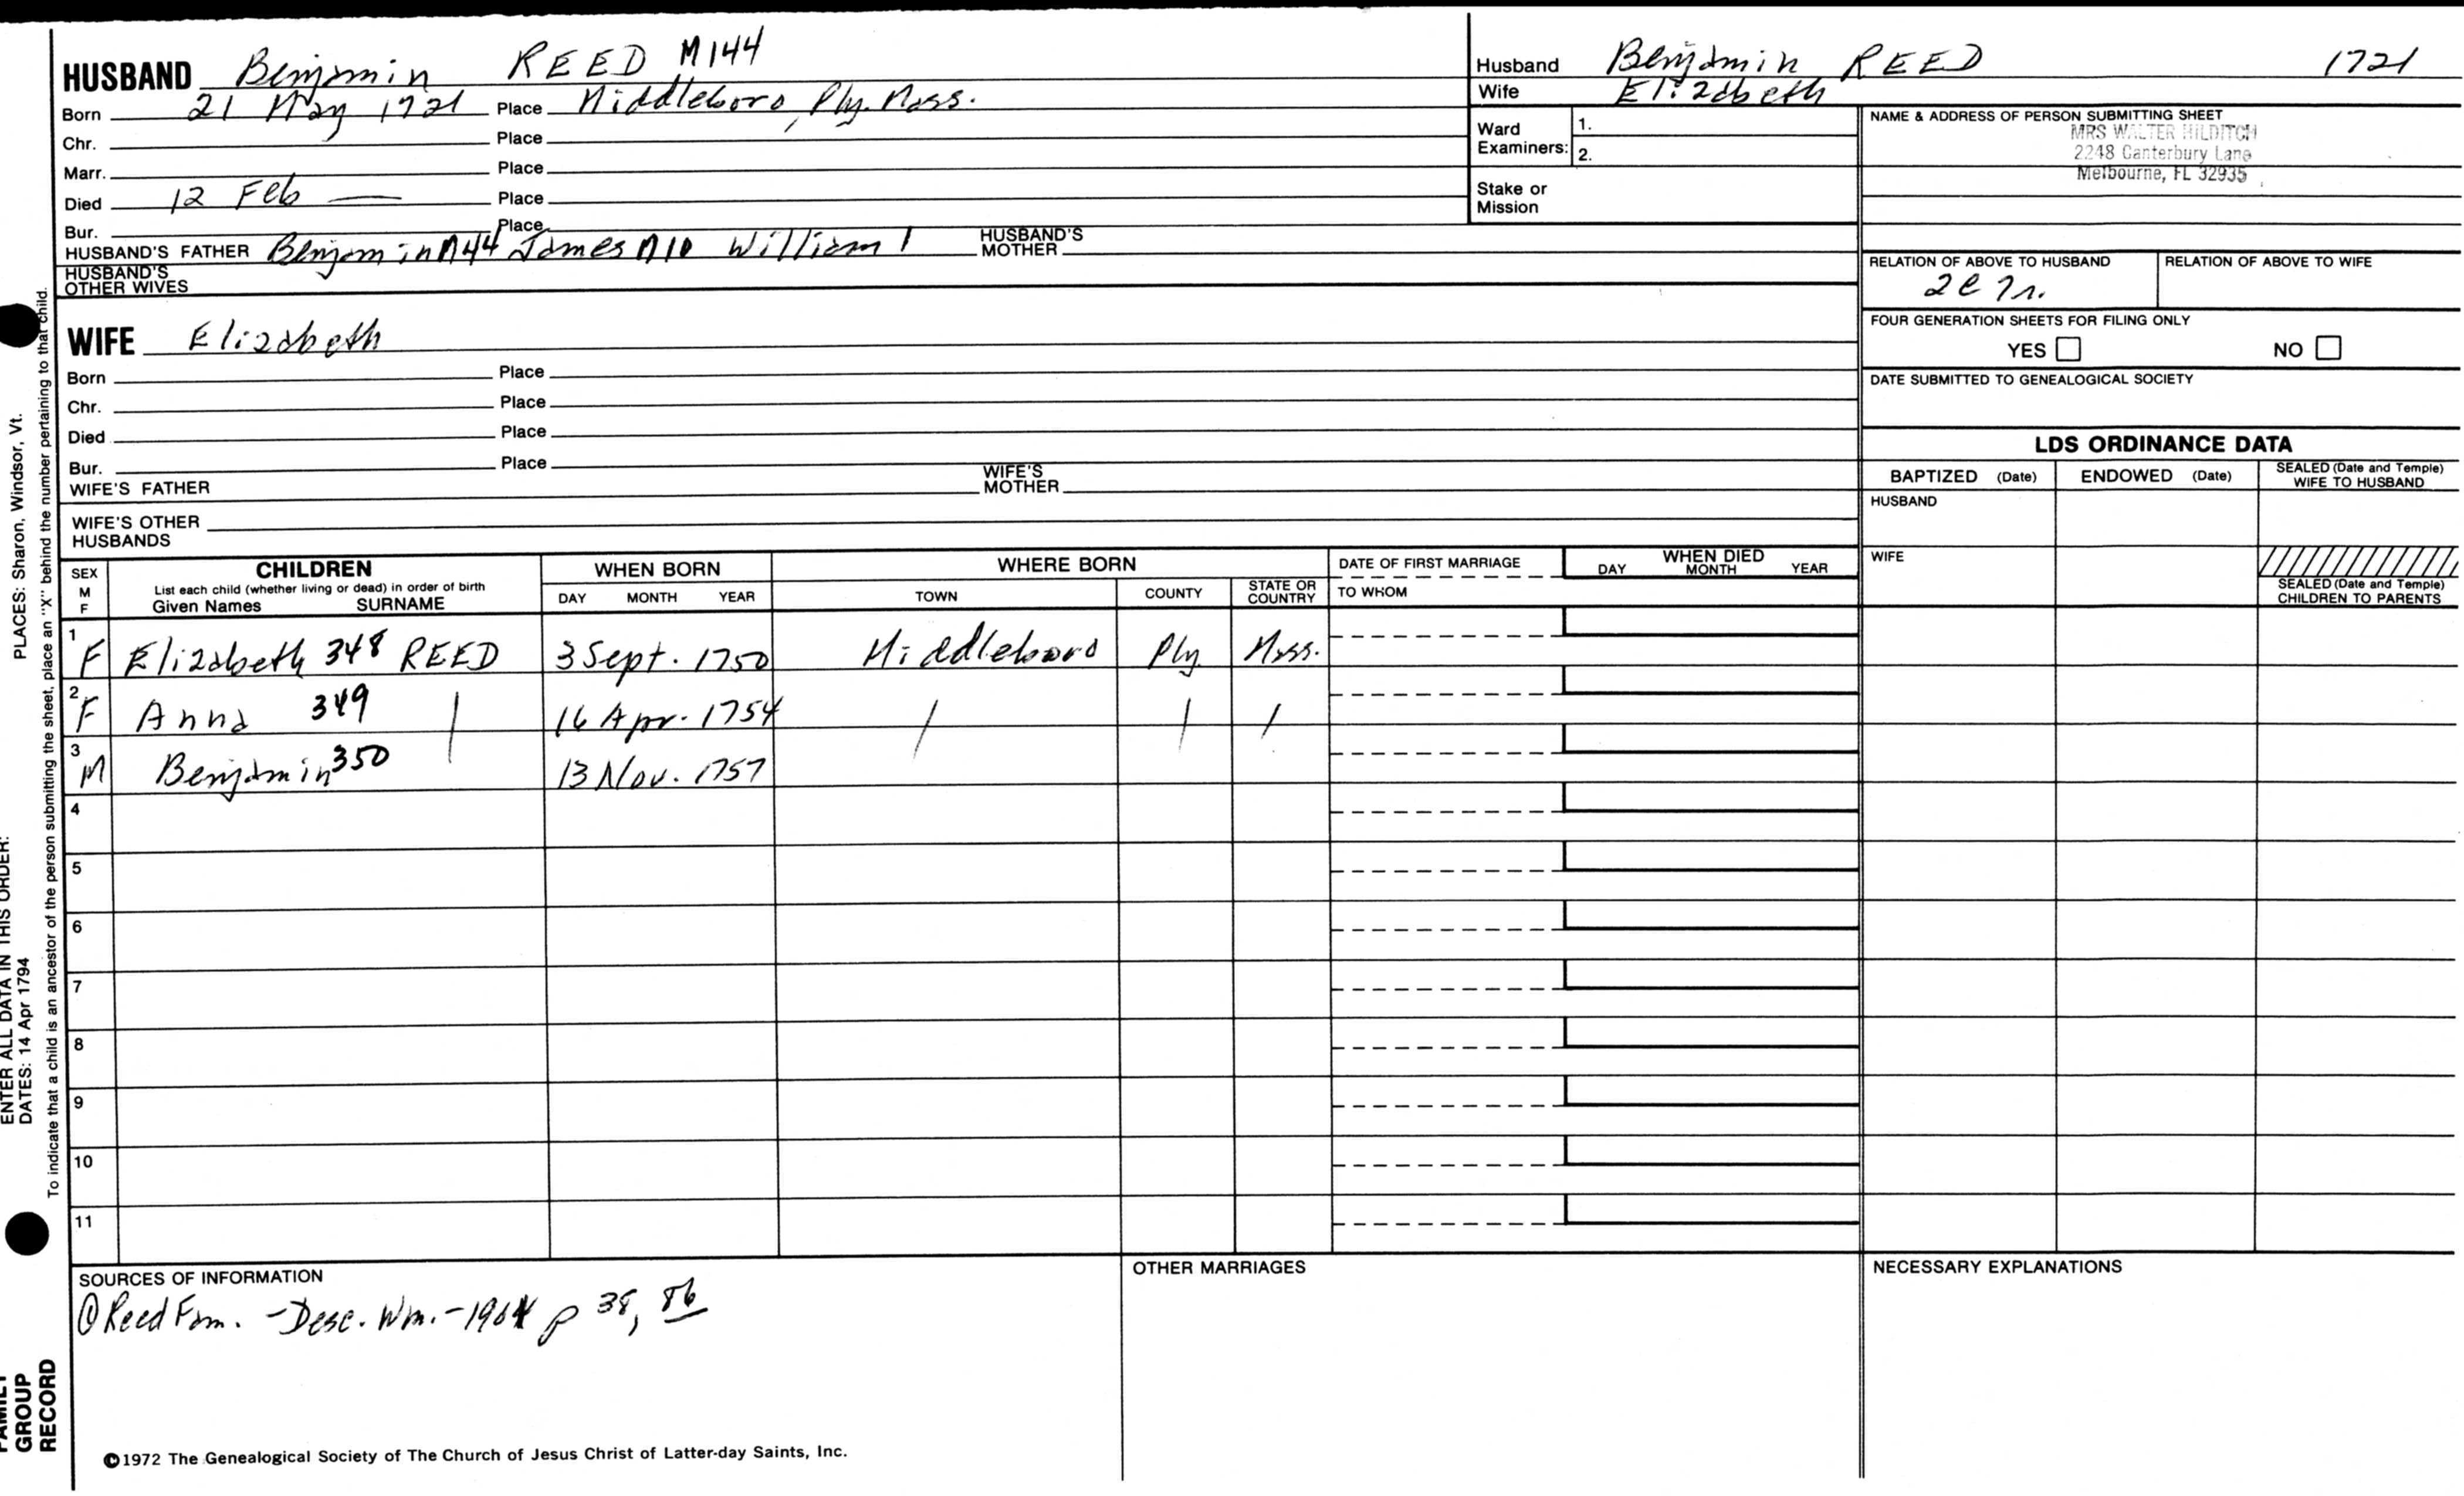 HUSBAND Benjamin REED M144
Born 21 May 1721 Place Middleboro, Ply. Mass.
Chr. Place
Marr. Place
Died 12 Feb — Place
Bur. Place
HUSBAND'S FATHER Benjamin M44 James M10 William 1 HUSBAND'S MOTHER
HUSBAND'S OTHER WIVES
Husband Benjamin REED 1721
Wife Elizabeth
Ward Examiners: 1.
2.
Stake or Mission
NAME & ADDRESS OF PERSON SUBMITTING SHEET
MRS WALTER HILDITCH
2248 Canterbury Lane
Melbourne, FL 32935
RELATION OF ABOVE TO HUSBAND RELATION OF ABOVE TO WIFE
FOUR GENERATION SHEETS FOR FILING ONLY
YES NO
DATE SUBMITTED TO GENEALOGICAL SOCIETY
WIFE Elizabeth
Born Place
Chr. Place
Died Place
Bur. Place
WIFE'S FATHER WIFE'S MOTHER
WIFE'S OTHER HUSBANDS
LDS ORDINANCE DATA
BAPTIZED (Date) ENDOWED (Date) SEALED (Date and Temple) WIFE TO HUSBAND
HUSBAND
WIFE
SEALED (Date and Temple) CHILDREN TO PARENTS
SEX M F
CHILDREN
List each child (whether living or dead) in order of birth
Given Names SURNAME
WHEN BORN
DAY MONTH YEAR
WHERE BORN
TOWN COUNTY STATE OR COUNTRY
DATE OF FIRST MARRIAGE
TO WHOM
WHEN DIED
DAY MONTH YEAR
1 F Elizabeth 348 REED 3 Sept. 1750 Middleboro Ply Mass.
2 F Anna 349 | 16 Apr. 1754 / | /
3 M Benjamin 350 13 Nov. 1757
4
5
6
7
8
9
10
11
SOURCES OF INFORMATION
① Reed Fam. - Desc. Wm. - 1964 p 38, 86
OTHER MARRIAGES
NECESSARY EXPLANATIONS
©1972 The Genealogical Society of The Church of Jesus Christ of Latter-day Saints, Inc.
PLACES: Sharon, Windsor, Vt.
ENTER ALL DATA IN THIS ORDER:
DATES: 14 Apr 1794
To indicate that a child is an ancestor of the person submitting the sheet, place an "X" behind the number pertaining to that child.
FAMILY
GROUP
RECORD